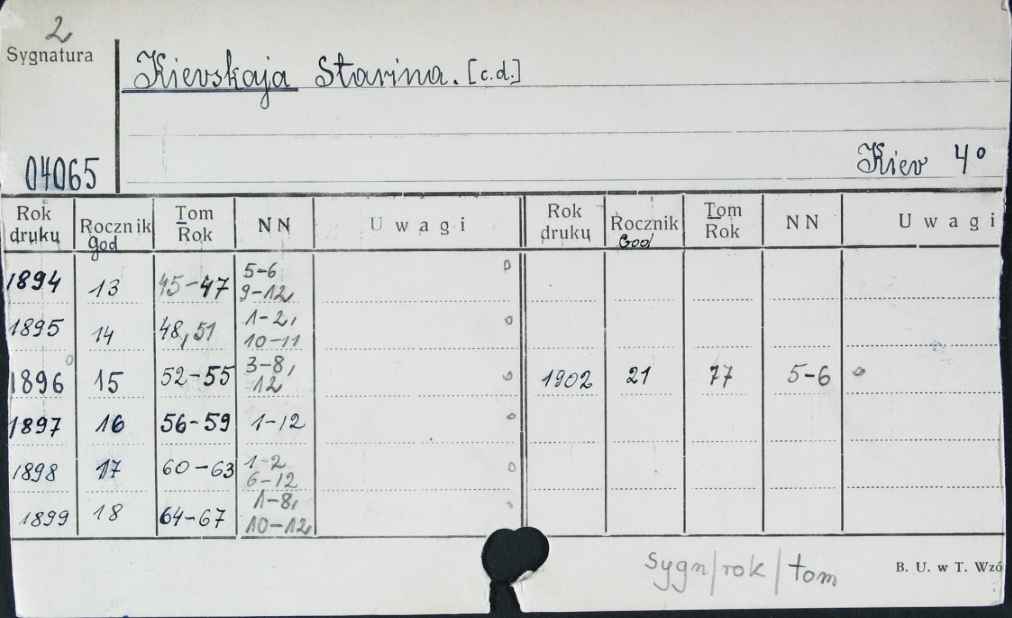 2
Sygnatura
Kievskaja Starina. [c.d.]
04065
Kiev 4°
Rok druku Rocznik god Tom Rok NN Uwagi Rok druku Rocznik God Tom Rok NN Uwagi
1894 13 45-47 5-6 9-12,
1895 14 48,51 1-2, 10-11
1896 15 52-55 3-8, 12 1902 21 77 5-6
1897 16 56-59 1-12
1898 17 60-63 1-2 6-12
1899 18 64-67 1-8, 10-12,
sygn/rok/tom
B. U. w T. Wzó